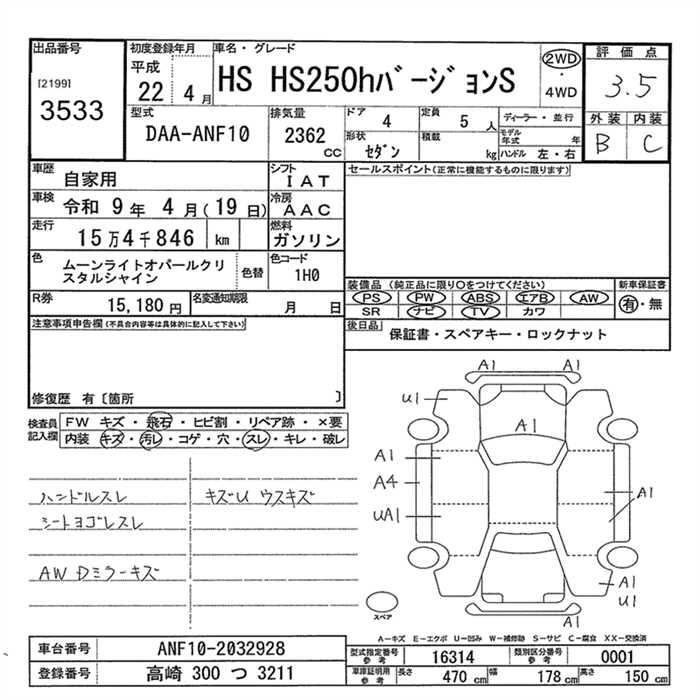 出品番号
[2199]
3533
初度登録年月
平成
22 4 月
車名・グレード
HS HS250hバージョンS
2WD
・
4WD
評価点
3.5
外装 内装
B C
型式
DAA-ANF10
排気量
2362
CC
ドア 4
定員 5 人
形状 セダン
積載 kg
ディーラー・並行
モデル年式 年
ハンドル 左・右
車歴 自家用
シフト IAT
車検 令和 9 年 4 月(19 日)
冷房 AAC
走行 15万4千846 km
燃料 ガソリン
色 ムーンライトオパールクリ
スタルシャイン
色替
色コード 1H0
R券 15,180 円
名変通知期限 月 日
セールスポイント(正常に機能するものに限ります)
装備品 (純正品に限り○をつけてください)
新車保証書
PS PW ABS エアB AW
有・無
SR ナビ TV カワ
後日品
保証書・スペアキー・ロックナット
注意事項申告欄(不具合内容等は具体的に記入して下さい)
修復歴 有〔箇所 〕
検査員
記入欄
FW キズ・飛石・ヒビ割・リペア跡・×要
内装 キズ・汚レ・コゲ・穴・スレ・キレ・破レ
ハンドルスレ
キズU ウスキズ
シートヨゴレスレ
AW Dミラーキズ
A1
U1
A1
A1
A4
A1
UA1
A1
U1
A1
スペア
A−キズ E−エクボ U−凹み W−補修跡 S−サビ C−腐食 XX−交換済
車台番号 ANF10-2032928
登録番号 高崎 300 つ 3211
型式指定番号
参考
16314
類別区分番号
参考
0001
車庫証明用
参考
長さ 470 cm
幅 178 cm
高さ 150 cm